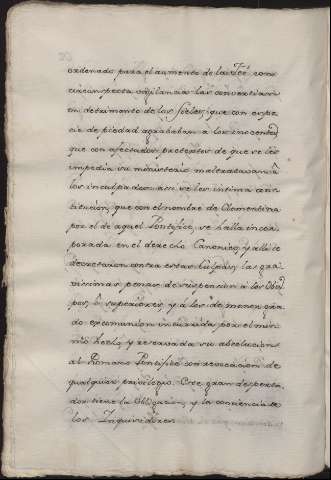 ordenado para el aumento de la fee con
circunspecta vigilancia las convertian
en detrimento de los fieles, que con espe
cie de piedad agravaban a los inocentes
que con afectados pretextos de que se les
impedia su ministerio maltrataban â
los inculpados. assi se les intima cons
titucion, que con el nombre de Clementina
por el de aquel Pontifice, se halla incor
porada en el derecho Canonico, y alli se
decretaron contra estas culpas, las gra
vissimas penas de suspension a los Obis
pos, ô superiores, y a los de menor gra
do excomunion incurrida por el mis
mo hecho, y reservada su absolucion
al Romano Pontifice con revocacion de
qualquier privilegio. Este gran desperta
dor tiene la obligacion, y la conciencia de
los Inquisidores